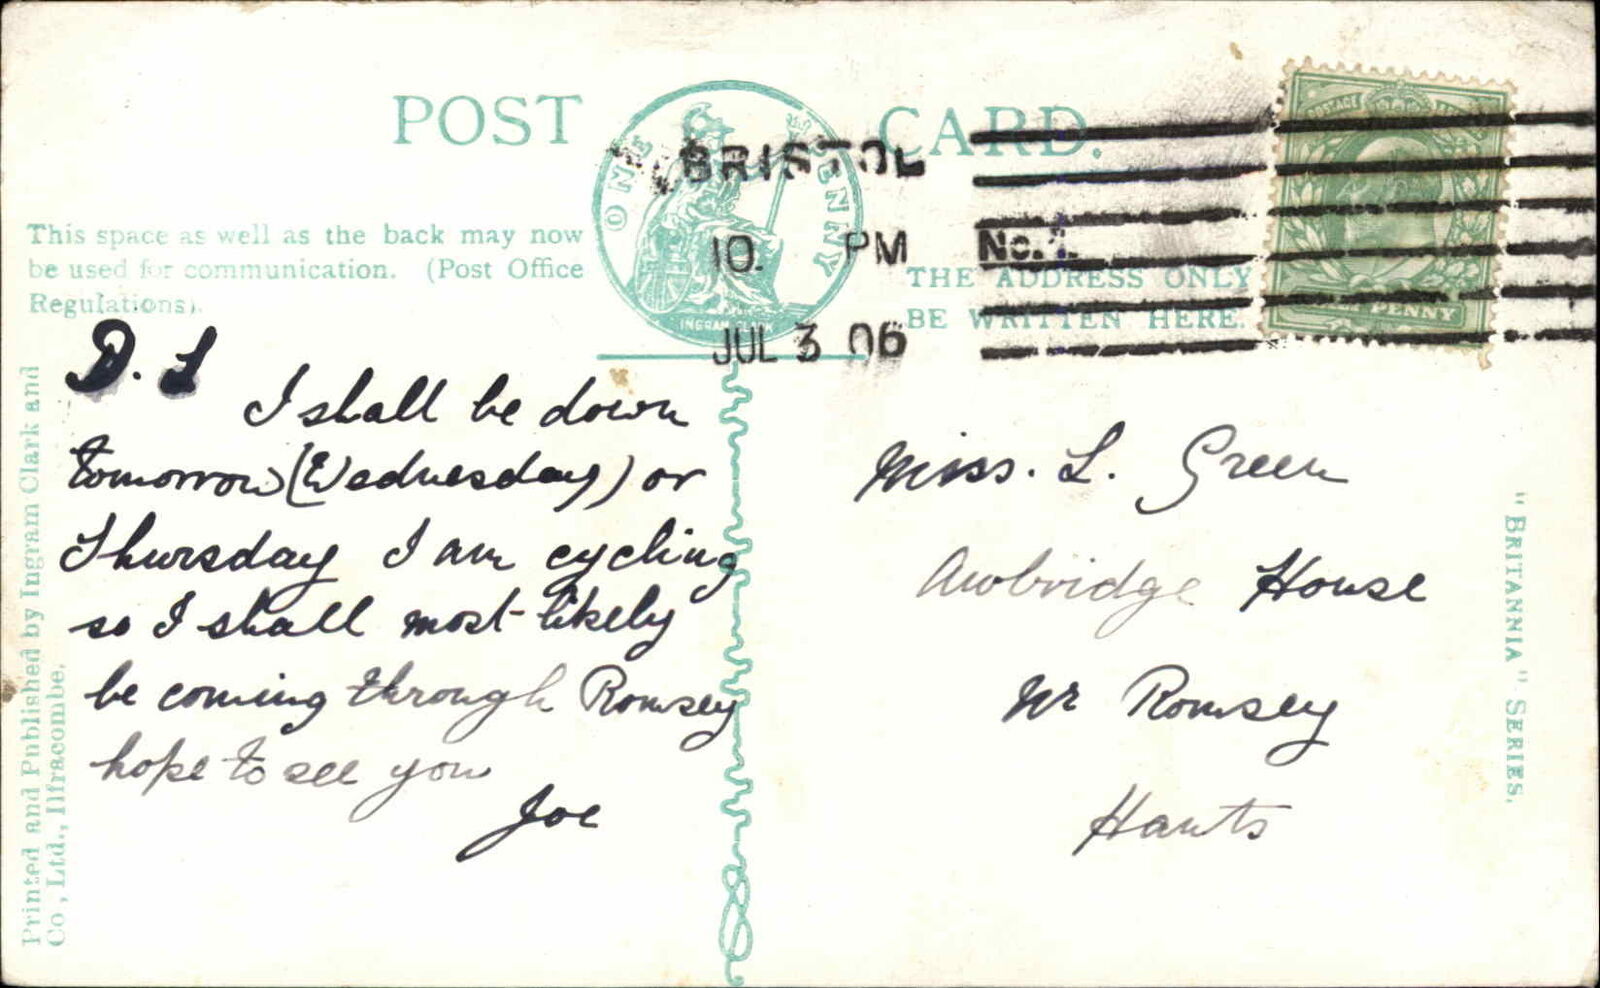 POST CARD.
ONE PENNY
INGRAM CLARK
BRISTOL
10. PM
No.1.
JUL 3 06
POSTAGE
PENNY
This space as well as the back may now
be used for communication. (Post Office
Regulations).
THE ADDRESS ONLY
BE WRITTEN HERE.
D. L
I shall be down
tomorrow (Wednesday) or
Thursday I am cycling
so I shall most likely
be coming through Romsey
hope to see you
Joe
Miss. L. Green
Awbridge House
Nr Romsey
Hants
Printed and Published by Ingram Clark and
Co., Ltd., Ilfracombe.
"BRITANNIA" SERIES.